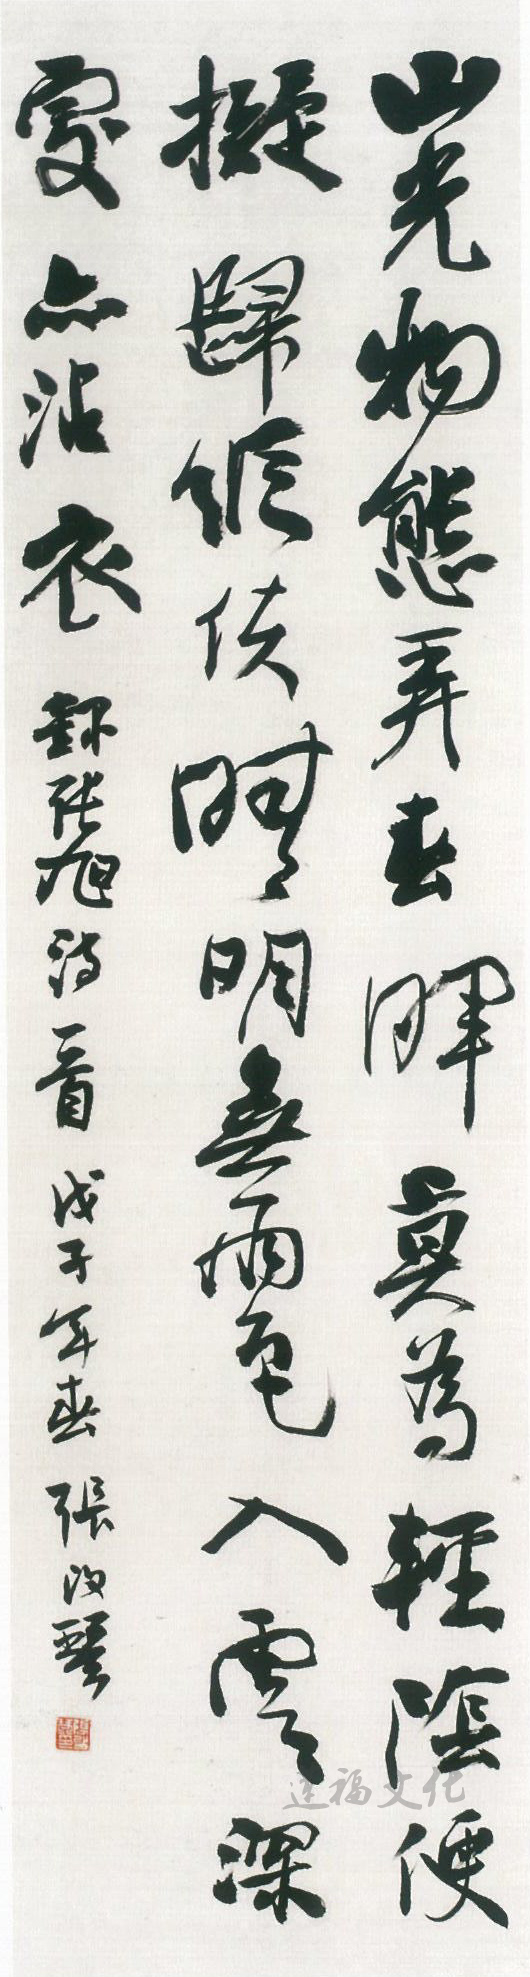 山光物態弄春暉莫為輕陰便
擬歸縱使晴明無雨色入雲深
處亦沾衣 錄张旭诗一首 戊子年春 張改琴
福文化